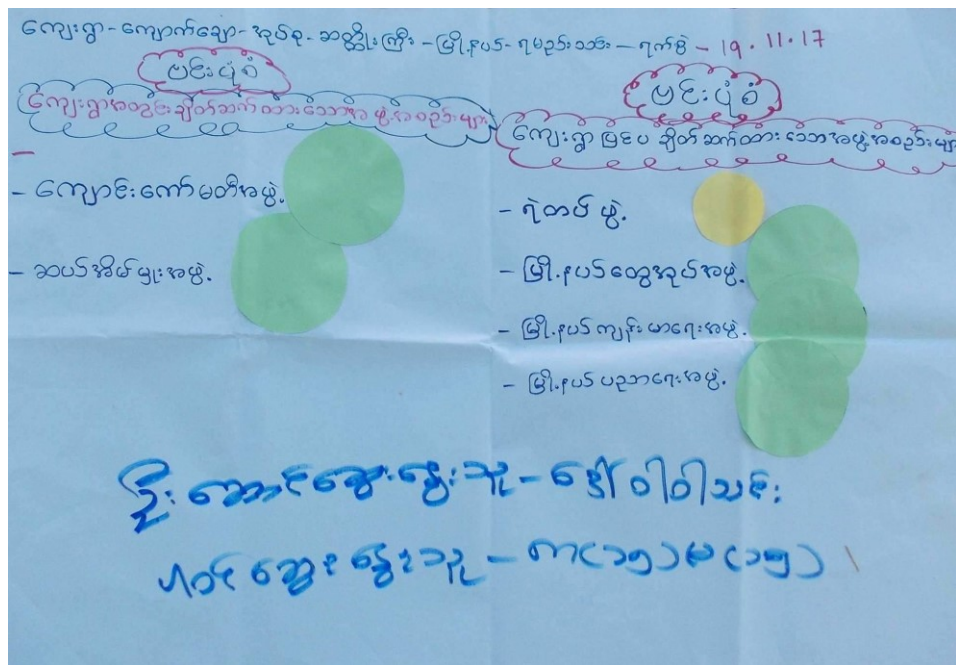 ကျေးရွာ - ကျောက်ချော - အုပ်စု - ဆတ္တိုးကြီး - မြို့နယ် - ရမည်းသင်း - ရက်စွဲ - 19.11.17
ပင်းပုံစံ
ကျေးရွာအတွင်းချိတ်ဆက်ထားသောအဖွဲ့အစည်းများ
- ကျောင်းကော်မတီအဖွဲ့
- ဆယ်အိမ်မှူးအဖွဲ့
ပင်းပုံစံ
ကျေးရွာပြင်ပချိတ်ဆက်ထားသောအဖွဲ့အစည်းများ
- ရဲတပ်ဖွဲ့
- မြို့နယ်ထွေအုပ်အဖွဲ့
- မြို့နယ်ကျန်းမာရေးအဖွဲ့
- မြို့နယ်ပညာရေးအဖွဲ့
ဦးဆောင်ဆွေးနွေးသူ - ဒေါ်ဝါဝါသင်း
ပါဝင်ဆွေးနွေးသူ - ကျား(၁၅) မ(၁၅)